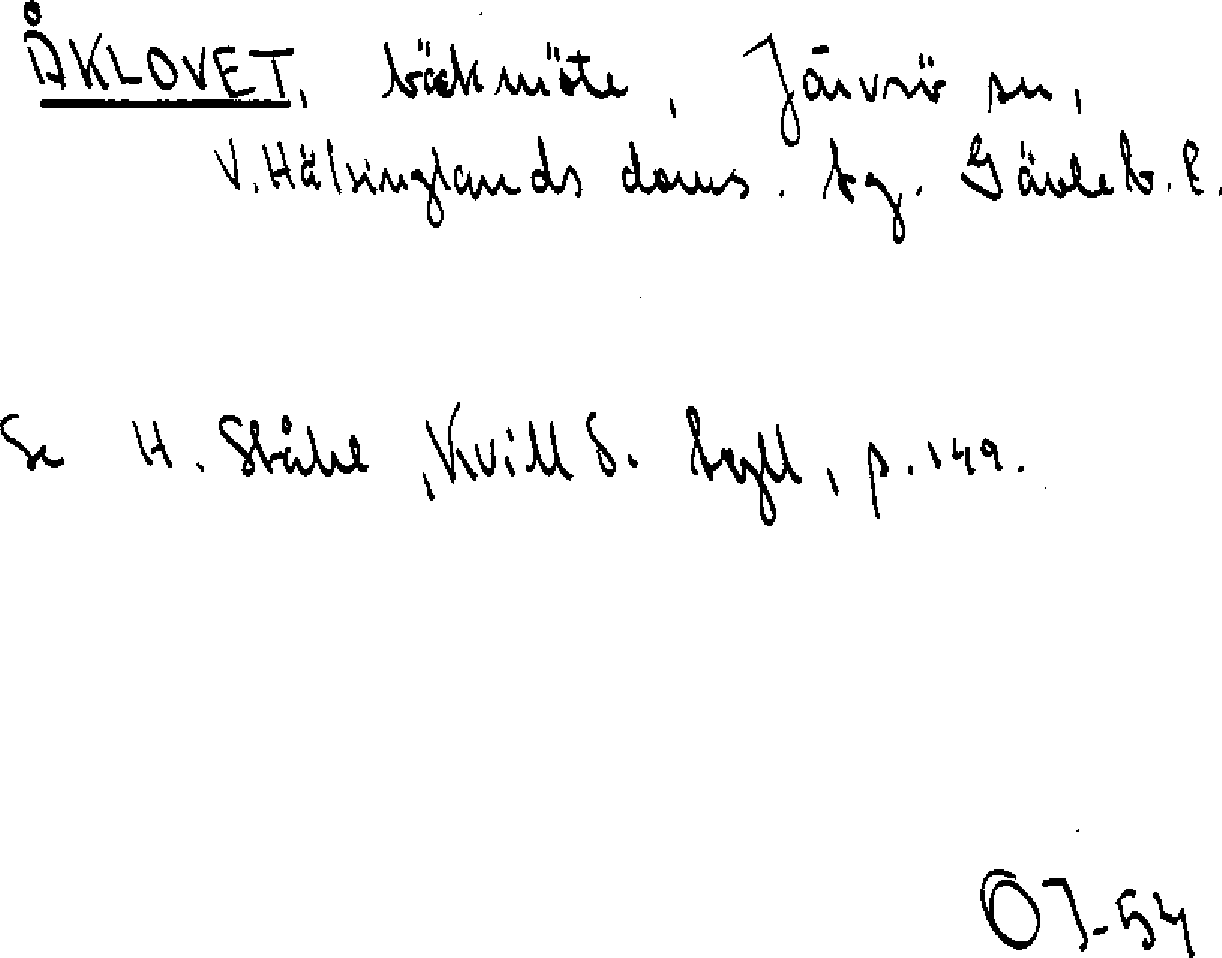 ÅKLOVET, bäckmöte, Järvsö sn,
V. Hälsinglands doms. tg. Gävleb. l.
Se H. Ståhl, Kvill o. tyll, p. 149.
OJ-54